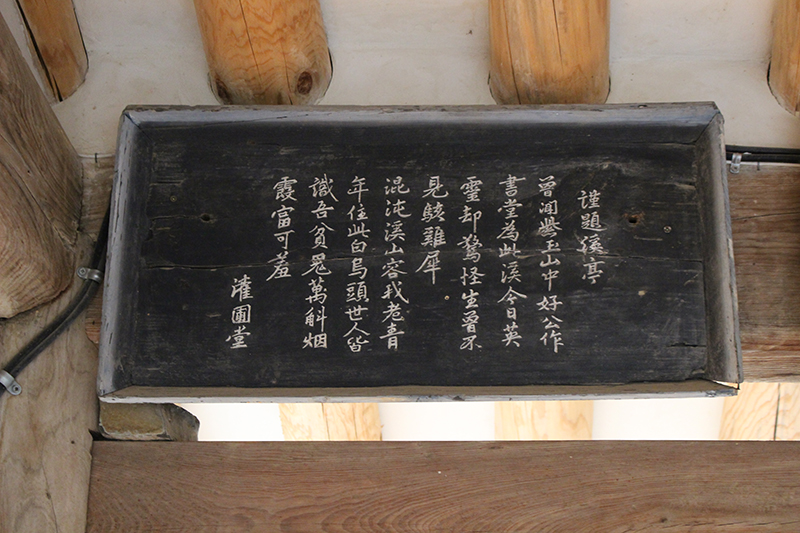 謹題溪亭
曾聞玉山中好公作
書堂為此溪今日英
靈却驚怪生曾不
見駭雞犀
混沌溪山容我老青
年住此白烏頭世人皆
識吾貧萬斛烟
霞富可羞
灌圃堂